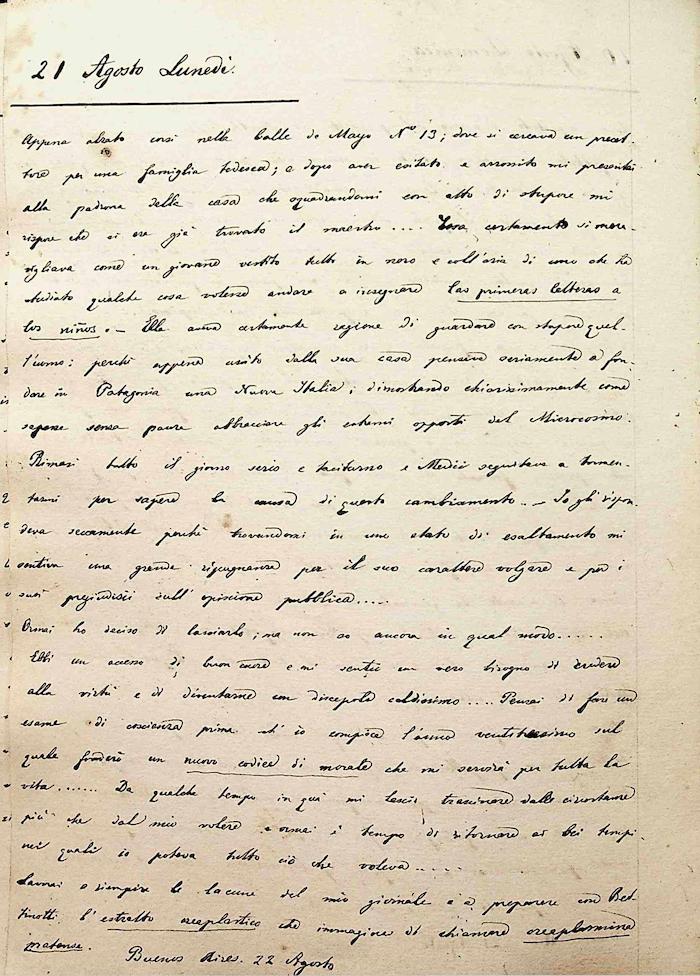 21 Agosto Lunedì.
Appena alzato corsi nella Calle de Mayo Nº 13; dove si cercava un precet-
tore per una famiglia tedesca; e dopo aver esitato e arrossito mi presentai
alla padrona della casa che squadrandomi con atto di stupore mi
rispose che si era già trovato il maestro.... Essa certamente si mera-
vigliava come un giovane vestito tutto in nero e coll'aria di uno che ha
studiato qualche cosa volesse andare a insegnare las primeras letteras a
los niños. — Ella aveva certamente ragione di guardare con stupore quel-
l'uomo: perchè appena uscito dalla sua casa pensava seriamente a fon-
dare in Patagonia una Nuova Italia; dimostrando chiarissimamente come
sapesse senza paura abbracciare gli estremi opposti del Microcosmo.
Rimasi tutto il giorno serio e taciturno e Medici seguitava a tormen-
tarmi per sapere la causa di questo cambiamento.. — Io gli rispon-
deva seccamente perchè trovandomi in uno stato di esaltamento mi
sentiva una grande ripugnanza per il suo carattere volgare e per i
suoi pregiudizii sull'opinione pubblica....
Ormai ho deciso di lasciarlo; ma non so ancora in qual modo......
Ebbi un accesso di buon umore e mi sentii un vero bisogno di credere
alla virtù e di diventarne un discepolo caldissimo.... Pensai di fare un
esame di coscienza prima ch'io compisca l'anno ventitreesimo sul
quale fonderò un nuovo codice di morale che mi servirà per tutta la
vita...... Da qualche tempo in quà mi lascio trascinare dalle circostanze
più che dal mio volere e ormai è tempo di ritornare ai bei tempi
nei quali io poteva tutto ciò che voleva.....
Lavorai a riempire le lacune del mio giornale e a preparare con Bet-
tinotti l'estratto che immagino di chiamare
Buenos Aires. 22 Agosto